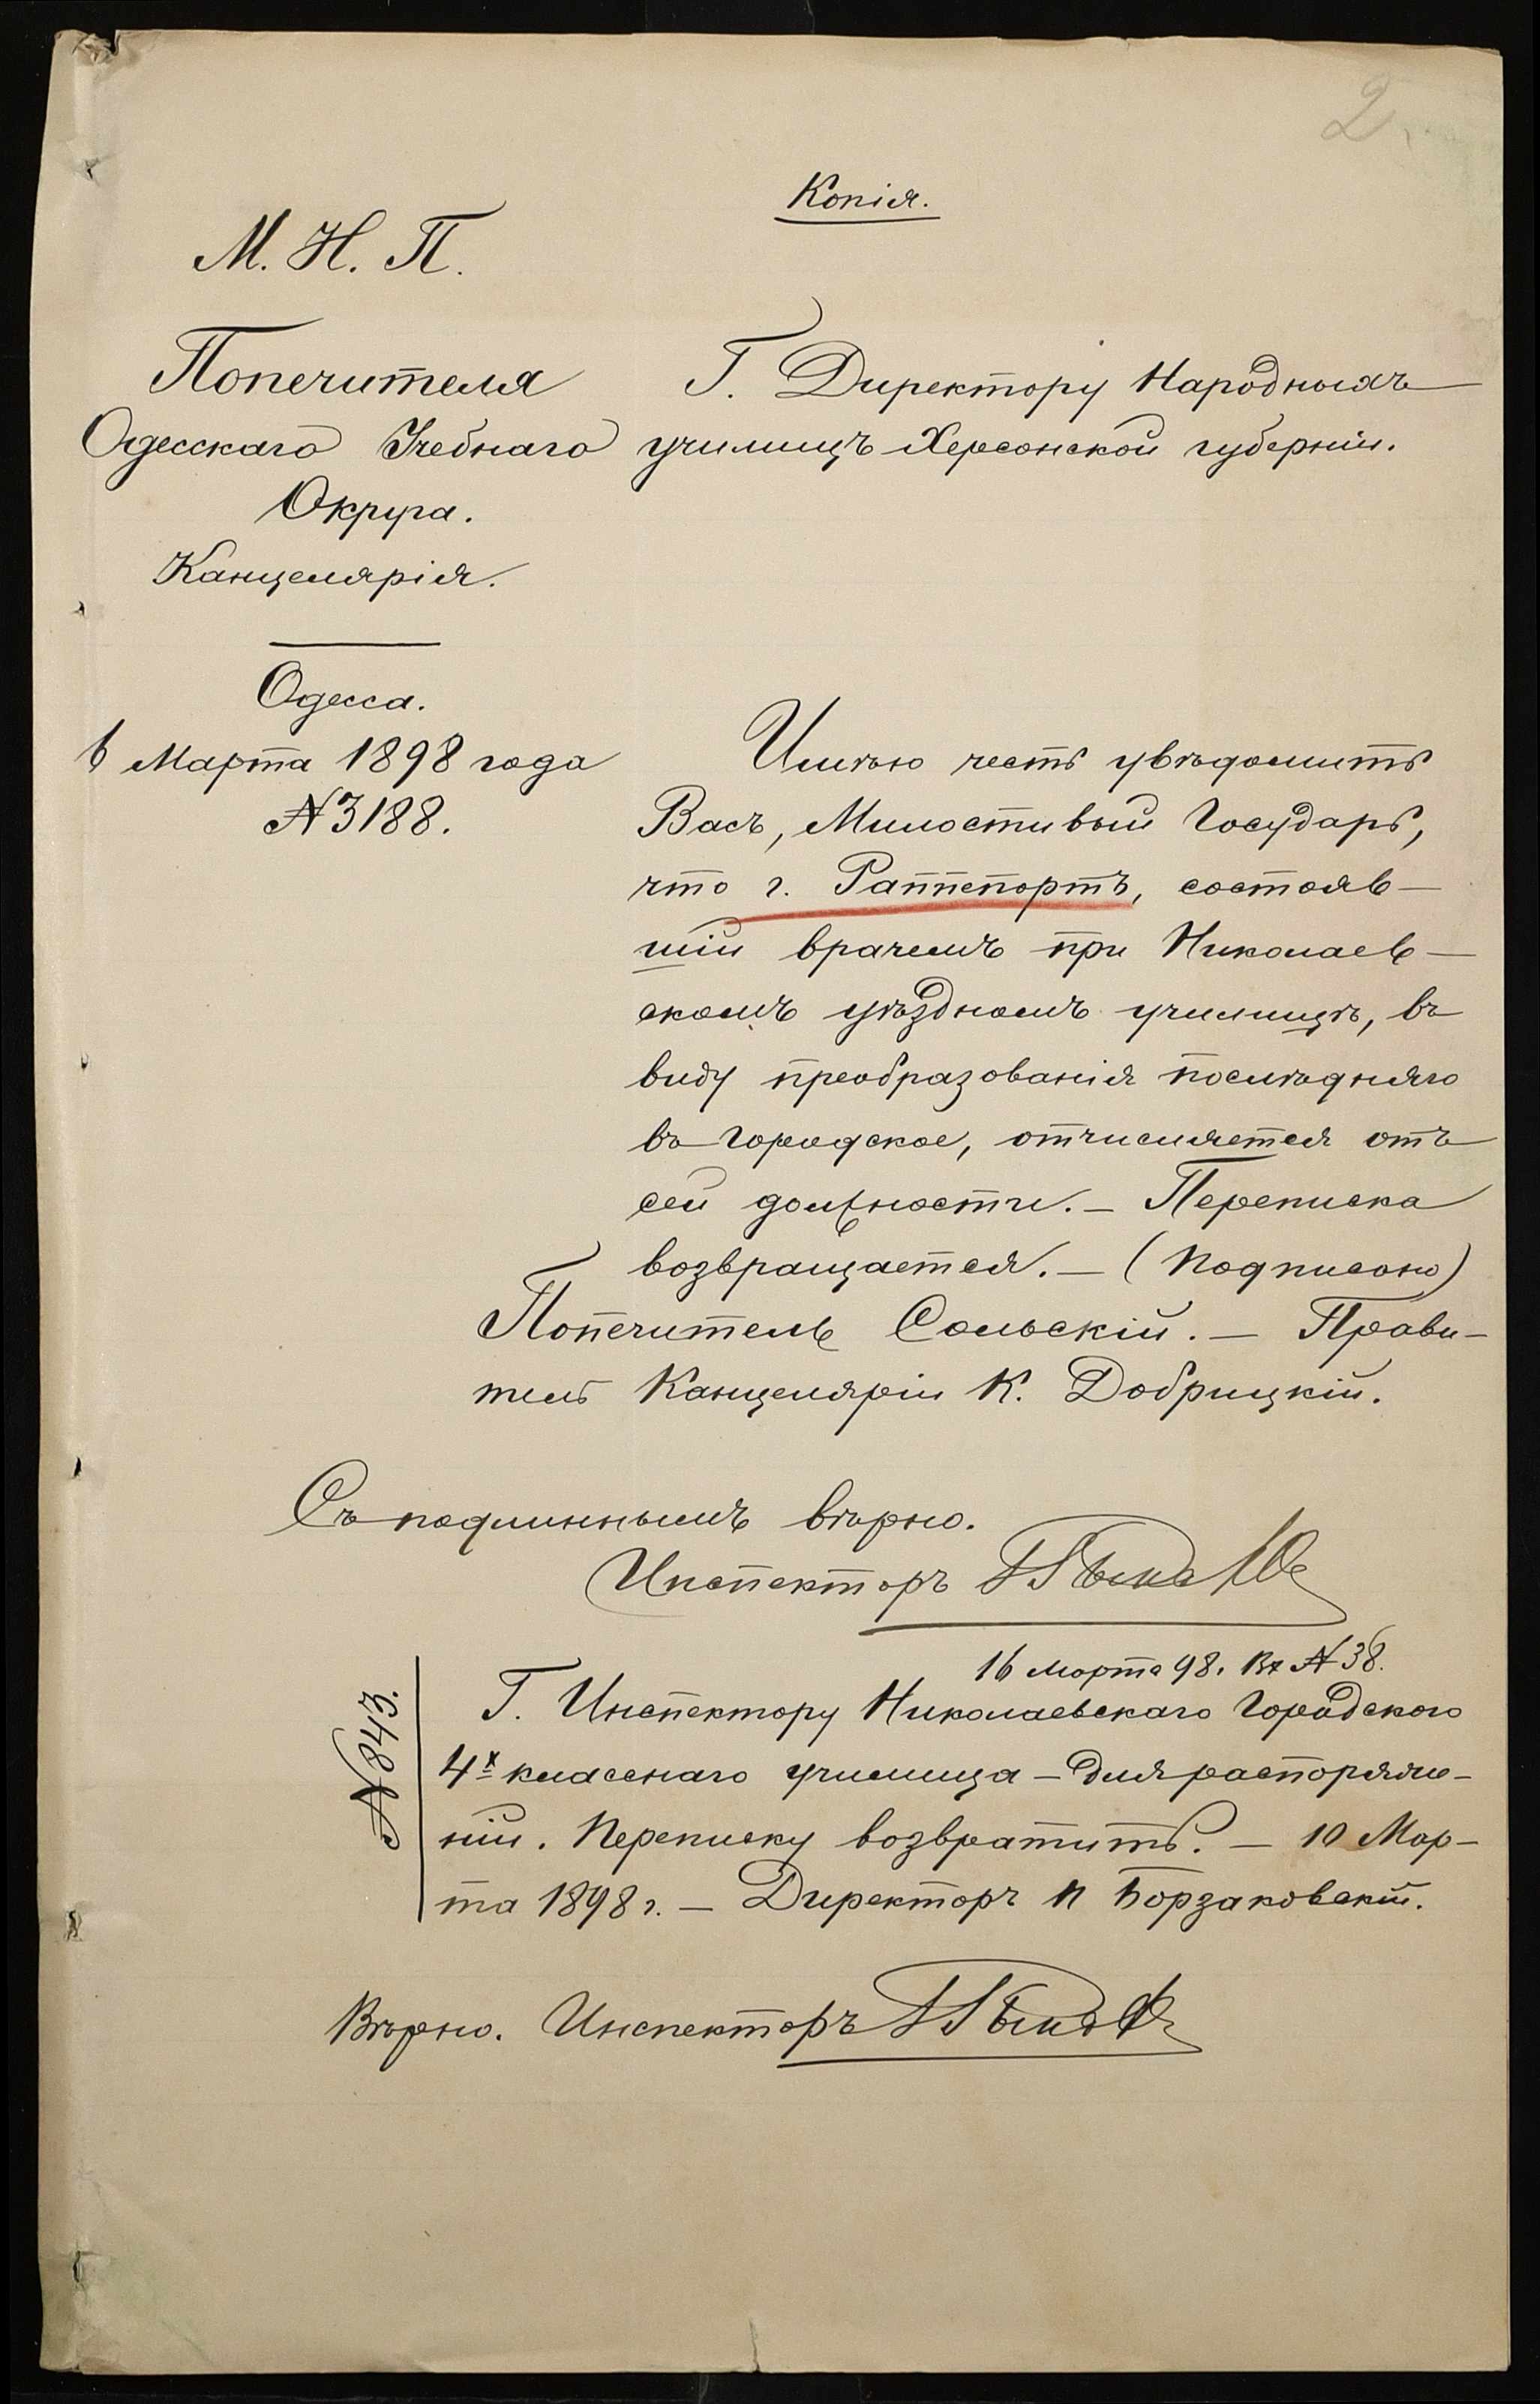 2.
Копія.
М. Н. П.
Попечителя
Одесскаго Учебнаго
Округа.
Канцелярія.
Одесса.
6 Марта 1898 года
№ 3188.
Г. Директору Народныхъ
училищъ Херсонской губерніи.
Имѣю честь увѣдомить
Васъ, Милостивый Государь,
что г. Раппепортъ, состояв-
шій врачемъ при Николаев-
скомъ уѣздномъ училищѣ, въ
виду преобразованія послѣдняго
въ городское, отчисляется отъ
сей должности. — Переписка
возвращается. — (Подписано)
Попечитель Сольскій. — Прави-
тель Канцеляріи К. Добрицкій.
Съ подлиннымъ вѣрно.
Инспекторъ
16 Марта 98. Вх № 38.
№ 843.
Г. Инспектору Николаевскаго Городского
4х класснаго училища — для распоряже-
ній. Переписку возвратить. — 10 Мар-
та 1898 г. — Директоръ П Борзаковскій.
Вѣрно. Инспекторъ